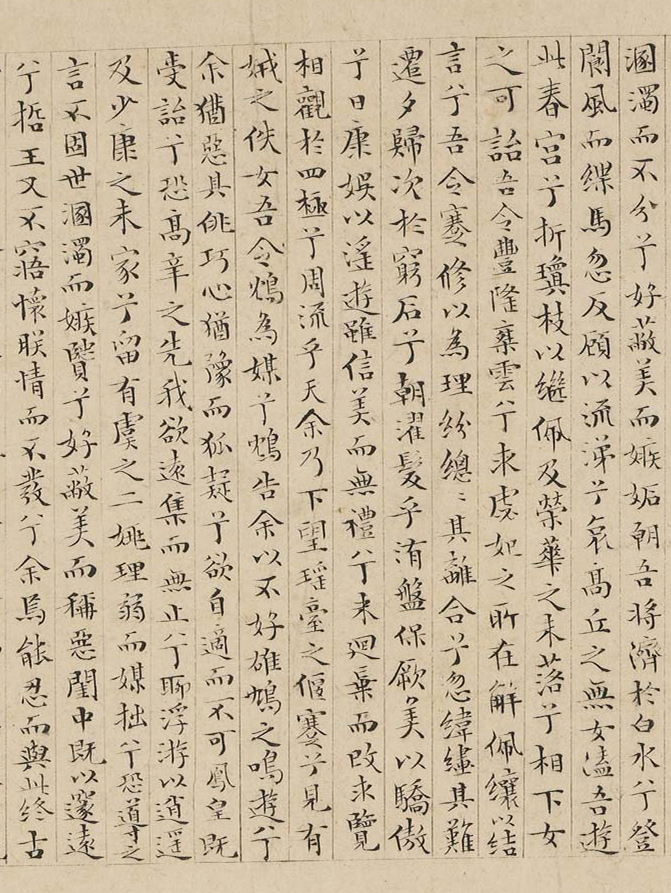 溷濁而不分兮好蔽美而嫉妬朝吾将濟於白水兮登
閬風而緤馬忽反顧以流涕兮哀高丘之無女溘吾遊
此春宮兮折瓊枝以繼佩及榮華之未落兮相下女
之可詒吾令豐隆椉雲兮求虙妃之所在解佩纕以結
言兮吾令蹇修以為理紛總〻其離合兮忽緯繣其難
遷夕歸次於窮石兮朝濯髮乎洧盤保厥美以驕傲
兮日康娛以淫遊雖信美而無禮兮来迴棄而改求覽
相觀於四極兮周流乎天余乃下望瑶臺之偃蹇兮見有
娀之佚女吾令鴆為媒兮鴆告余以不好雄鳩之鳴遊兮
余猶惡其佻巧心猶豫而狐疑兮欲自適而不可鳳皇既
受詒兮恐高辛之先我欲遠集而無止兮聊浮游以逍遥
及少康之未家兮留有虞之二姚理弱而媒拙兮恐導之
言不固世溷濁而嫉賢兮好蔽美而稱惡閨中既以邃遠
兮哲王又不寤懷朕情而不發兮余焉能忍而與此終古